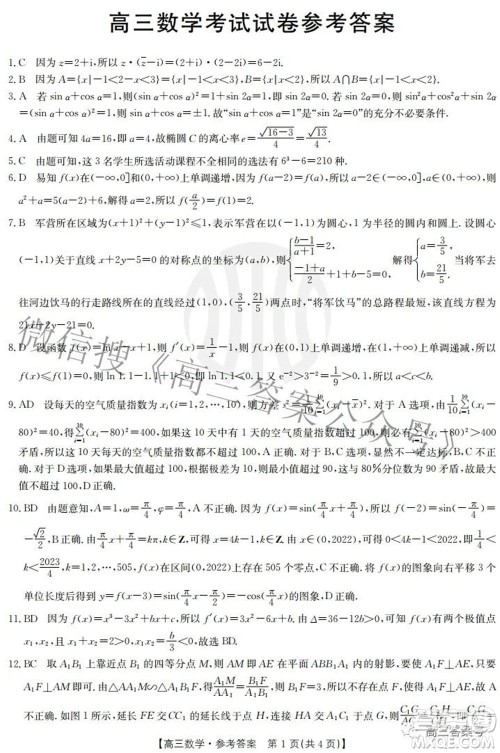 高三数学考试试卷参考答案
1. C 因为z=2+i,所以z·(z̄-i)=(2+i)·(2-2i)=6-2i.
2. B 因为A={x|-1<2-x<3}={x|-1<x<3},B={x|-2<x<2},所以A∩B={x|-1<x<2}.
3. A 若sin α+cos α=1,则(sin α+cos α)²=1+sin 2α=1,即sin 2α=0. 若sin 2α=0,则sin²α+cos²α+sin 2α
=(sin α+cos α)²=1,则sin α+cos α=±1. 故“sin α+cos α=1”是“sin 2α=0”的充分不必要条件.
4. A 由题可知4a=16,即a=4,故椭圆C的离心率e=√(16-3)/4=√13/4.
5. C 由题可知,这3名学生所选活动课程不全相同的选法有6³-6=210种.
6. D 易知f(x)在(-∞,0]和(0,+∞)上单调递增,因为f(a-2)=f(a),所以a-2∈(-∞,0],a∈(0,+∞),则
a²+a=5(a-2)+6,解得a=2,所以f(a/2)=f(1)=2.
7. B 军营所在区域为(x+1)²+(y-1)²≤1,表示军营在以(-1,1)为圆心,1为半径的圆内和圆上. 设圆心
(-1,1)关于直线x+2y-5=0的对称点的坐标为(a,b),则{(b-1)/(a+1)=2, (-1+a)/2+1+b-5=0, 解得{a=3/5, b=21/5. 当将军去
往河边饮马的行走路线所在的直线经过(1,0),(3/5,21/5)两点时,“将军饮马”的总路程最短,该直线方程为
21x+2y-21=0.
8. D 设函数f(x)=ln x-x+1,则f′(x)=1/x-1,则f(x)在(0,1)上单调递增,在(1,+∞)上单调递减,所以
f(x)≤f(1)=0,则ln 1.1-1.1+1<0,即ln 1.1<0.1. 又 >0.1,所以a<c<b.
9. AD 设每天的空气质量指数为xᵢ(i=1,2,…,10),则方差
80)²=40,得 (xᵢ-80)²=400,如果这10天中有1天的空气质量指数超过100,则必有 (xᵢ-80)²>400
矛盾,所以这10天每天的空气质量指数都不超过100,A正确. 对于B,C选项,显然不一定达标,B,C不正
确. 对于D选项,如果最大值超过100,根据极差为10,则最小值超过90,这与80%分位数为90矛盾,故最大
值不超过100,D正确.
10. BD 由题意知,A=1,ω=π/4,φ=π/4,A不正确. 因为f(x)=sin(π/4x+π/4),所以f(-2)=sin(-π/4)=
-√2/2,B正确. 由π/4x+π/4=kπ,k∈Z,可得x=4k-1,k∈Z. 由x∈(0,2022),可得0<4k-1<2022,即1/4<
k<2023/4,k=1,2,…,505,f(x)在区间(0,2022)上存在505个零点,C不正确. 将f(x)的图象向右平移3个
单位长度后得到y=f(x-3)=sin(π/4x-π/2)=-cos(π/4x)的图象,D正确.
11. BD 因为f(x)=x³-3x²+bx+c,所以f′(x)=3x²-6x+b. 由Δ=36-12b>0,可知f(x)有两个极值点
x₁,x₂,且x₁+x₂=2>0,x₁x₂=b/3<0,故选BD.
12. BC 取A₁B₁上靠近点B₁的四等分点M,则AM即AE在平面ABB₁A₁内的射影,要使A₁F⊥AE,只要
A₁F⊥AM即可. 由△AA₁M∽△A₁B₁F,得A₁M/AA₁=B₁F/A₁B₁,则B₁F=3,所以不存在点F,使得A₁F⊥AE,故A错
误. 如图所示,延长FE交CC₁的延长线于点H,连接A₁H交AC₁于点G,则
高三数学·参考答案 第1页(共4页)
微信搜《高三答案公众号》
高三答案号